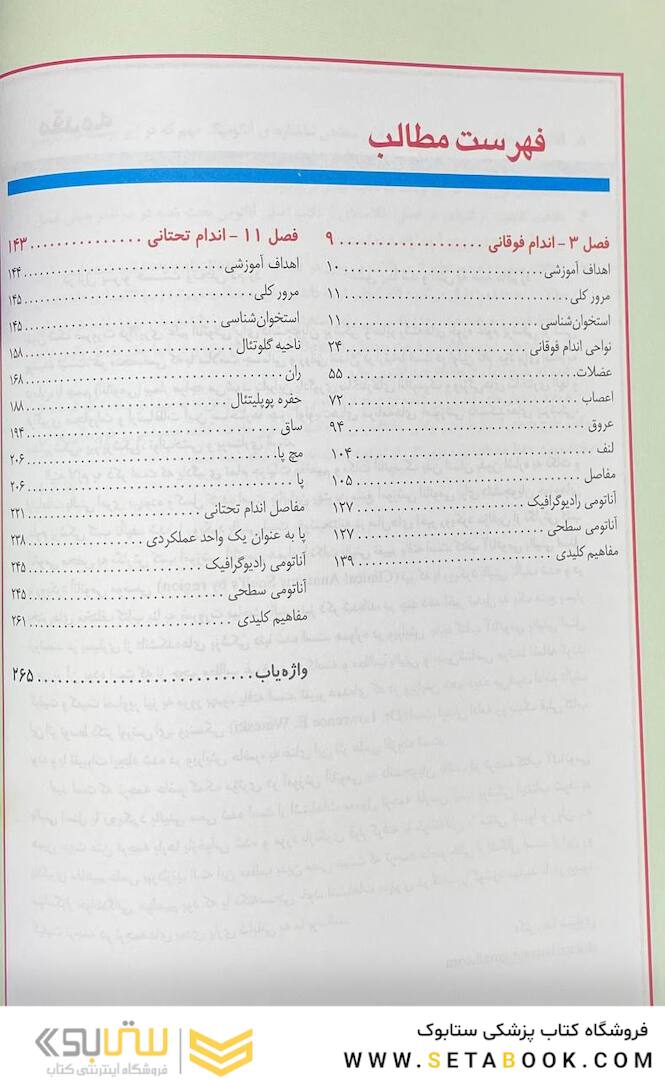 فهرست مطالب
فصل ۳ - اندام فوقانی ................... ۹
اهداف آموزشی ................... ۱۰
مرور کلی ................... ۱۱
استخوان‌شناسی ................... ۱۱
نواحی اندام فوقانی ................... ۲۴
عضلات ................... ۵۵
اعصاب ................... ۷۲
عروق ................... ۹۴
لنف ................... ۱۰۴
مفاصل ................... ۱۰۵
آناتومی رادیوگرافیک ................... ۱۲۷
آناتومی سطحی ................... ۱۲۷
مفاهیم کلیدی ................... ۱۳۹
فصل ۱۱ - اندام تحتانی ................... ۱۴۳
اهداف آموزشی ................... ۱۴۴
مرور کلی ................... ۱۴۵
استخوان‌شناسی ................... ۱۴۵
ناحیه گلوتئال ................... ۱۵۸
ران ................... ۱۶۸
حفره پوپلیتئال ................... ۱۸۸
ساق ................... ۱۹۴
مچ پا ................... ۲۰۶
پا ................... ۲۰۶
مفاصل اندام تحتانی ................... ۲۲۱
پا به عنوان یک واحد عملکردی ................... ۲۳۸
آناتومی رادیوگرافیک ................... ۲۴۵
آناتومی سطحی ................... ۲۴۵
مفاهیم کلیدی ................... ۲۶۱
واژه‌یاب ................... ۲۶۵
فروشگاه کتاب پزشکی ستابوک
WWW.SETABOOK.COM
ستابوک
فروشگاه اینترنتی کتاب